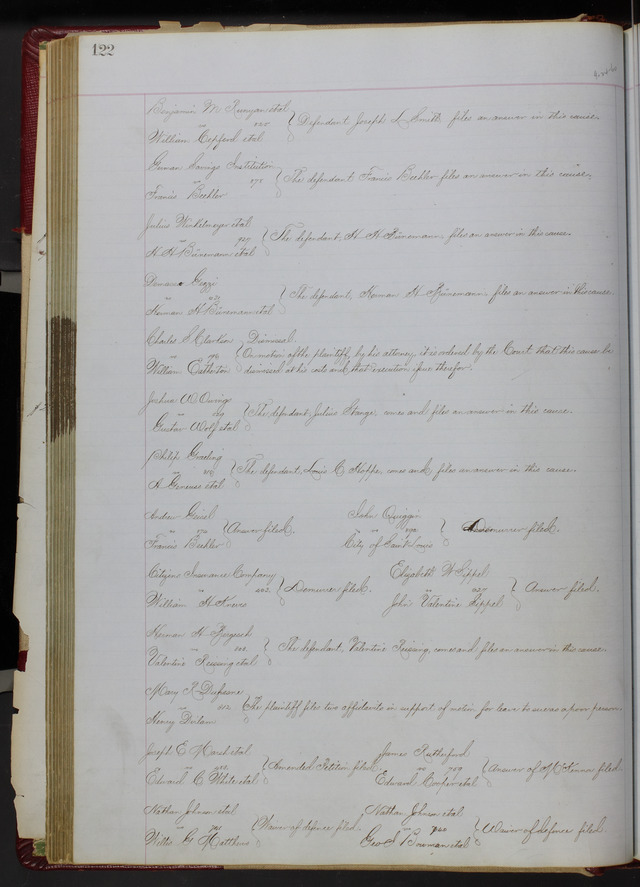 122
Benjamin M. Runyan et al
vs 225 Defendant Joseph L. Smith files an answer in this cause.
William et al
German Savings Institution
vs 271 The defendant Francis Beehler files an answer in this cause.
Francis Beehler
Julius Winkelmeyer et al
vs 927 The defendant, H. H. Bünemann files an answer in this cause.
H. H. Bünemann et al
vs The defendant, Herman H. Bünemann files an answer in this cause.
Herman H. Bünemann et al
Charles S. Clarkson Dismissed.
vs On motion of the plaintiff, by his attorney, it is ordered by the Court that this cause be
William dismissed at his costs and that execution issue therefor.
Joshua W. Owings
vs The defendant, Julius Stange, comes and files an answer in this cause.
Gustav Wolf et al
Philip Greding
vs The defendant, Louis C. Hoppe, comes and files an answer in this cause.
et al
Andrew Geisel John
vs Answer filed. vs Demurrer filed.
Francis Beehler City of Saint Louis
Citizens Insurance Company Elizabeth W. Sippel
vs 402 Demurrer filed. vs Answer filed.
William H. John Valentine Sippel
Herman H.
vs The defendant, Valentine Reissing, comes and files an answer in this cause.
Valentine Reissing et al
Mary R. Dufresne
vs 112 The plaintiff files two affidavits in support of motion for leave to sue as a poor person.
Henry
Joseph E. et al James Rutherford
vs Amended Petition filed. vs 799 Answer of McKenna filed.
Edward C. White et al Edward Cooper et al
Nathan Johnson et al Nathan Johnson et al
vs Waiver of defence filed. vs 740 Waiver of defence filed.
Willis G. Matthews Geo. S. Bowman et al